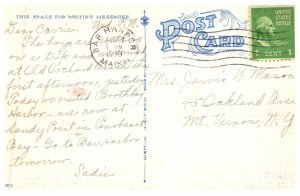 THIS SPACE FOR WRITING MESSAGES
Dear Carrie:
The boys are
on a trip and
at Old Orchard the
first afternoon,
Today we visited Boothbay
Harbor. are now at
Sandy Point in Penobscot
Bay - Go to Bar Harbor
tomorrow.
Sadie
BAR HARBOR
MAINE
POST
CARD
1 CENT 1
Mrs. Jarvis W. Mason
45 Oakland Ave
Mt. Vernon, N.Y.